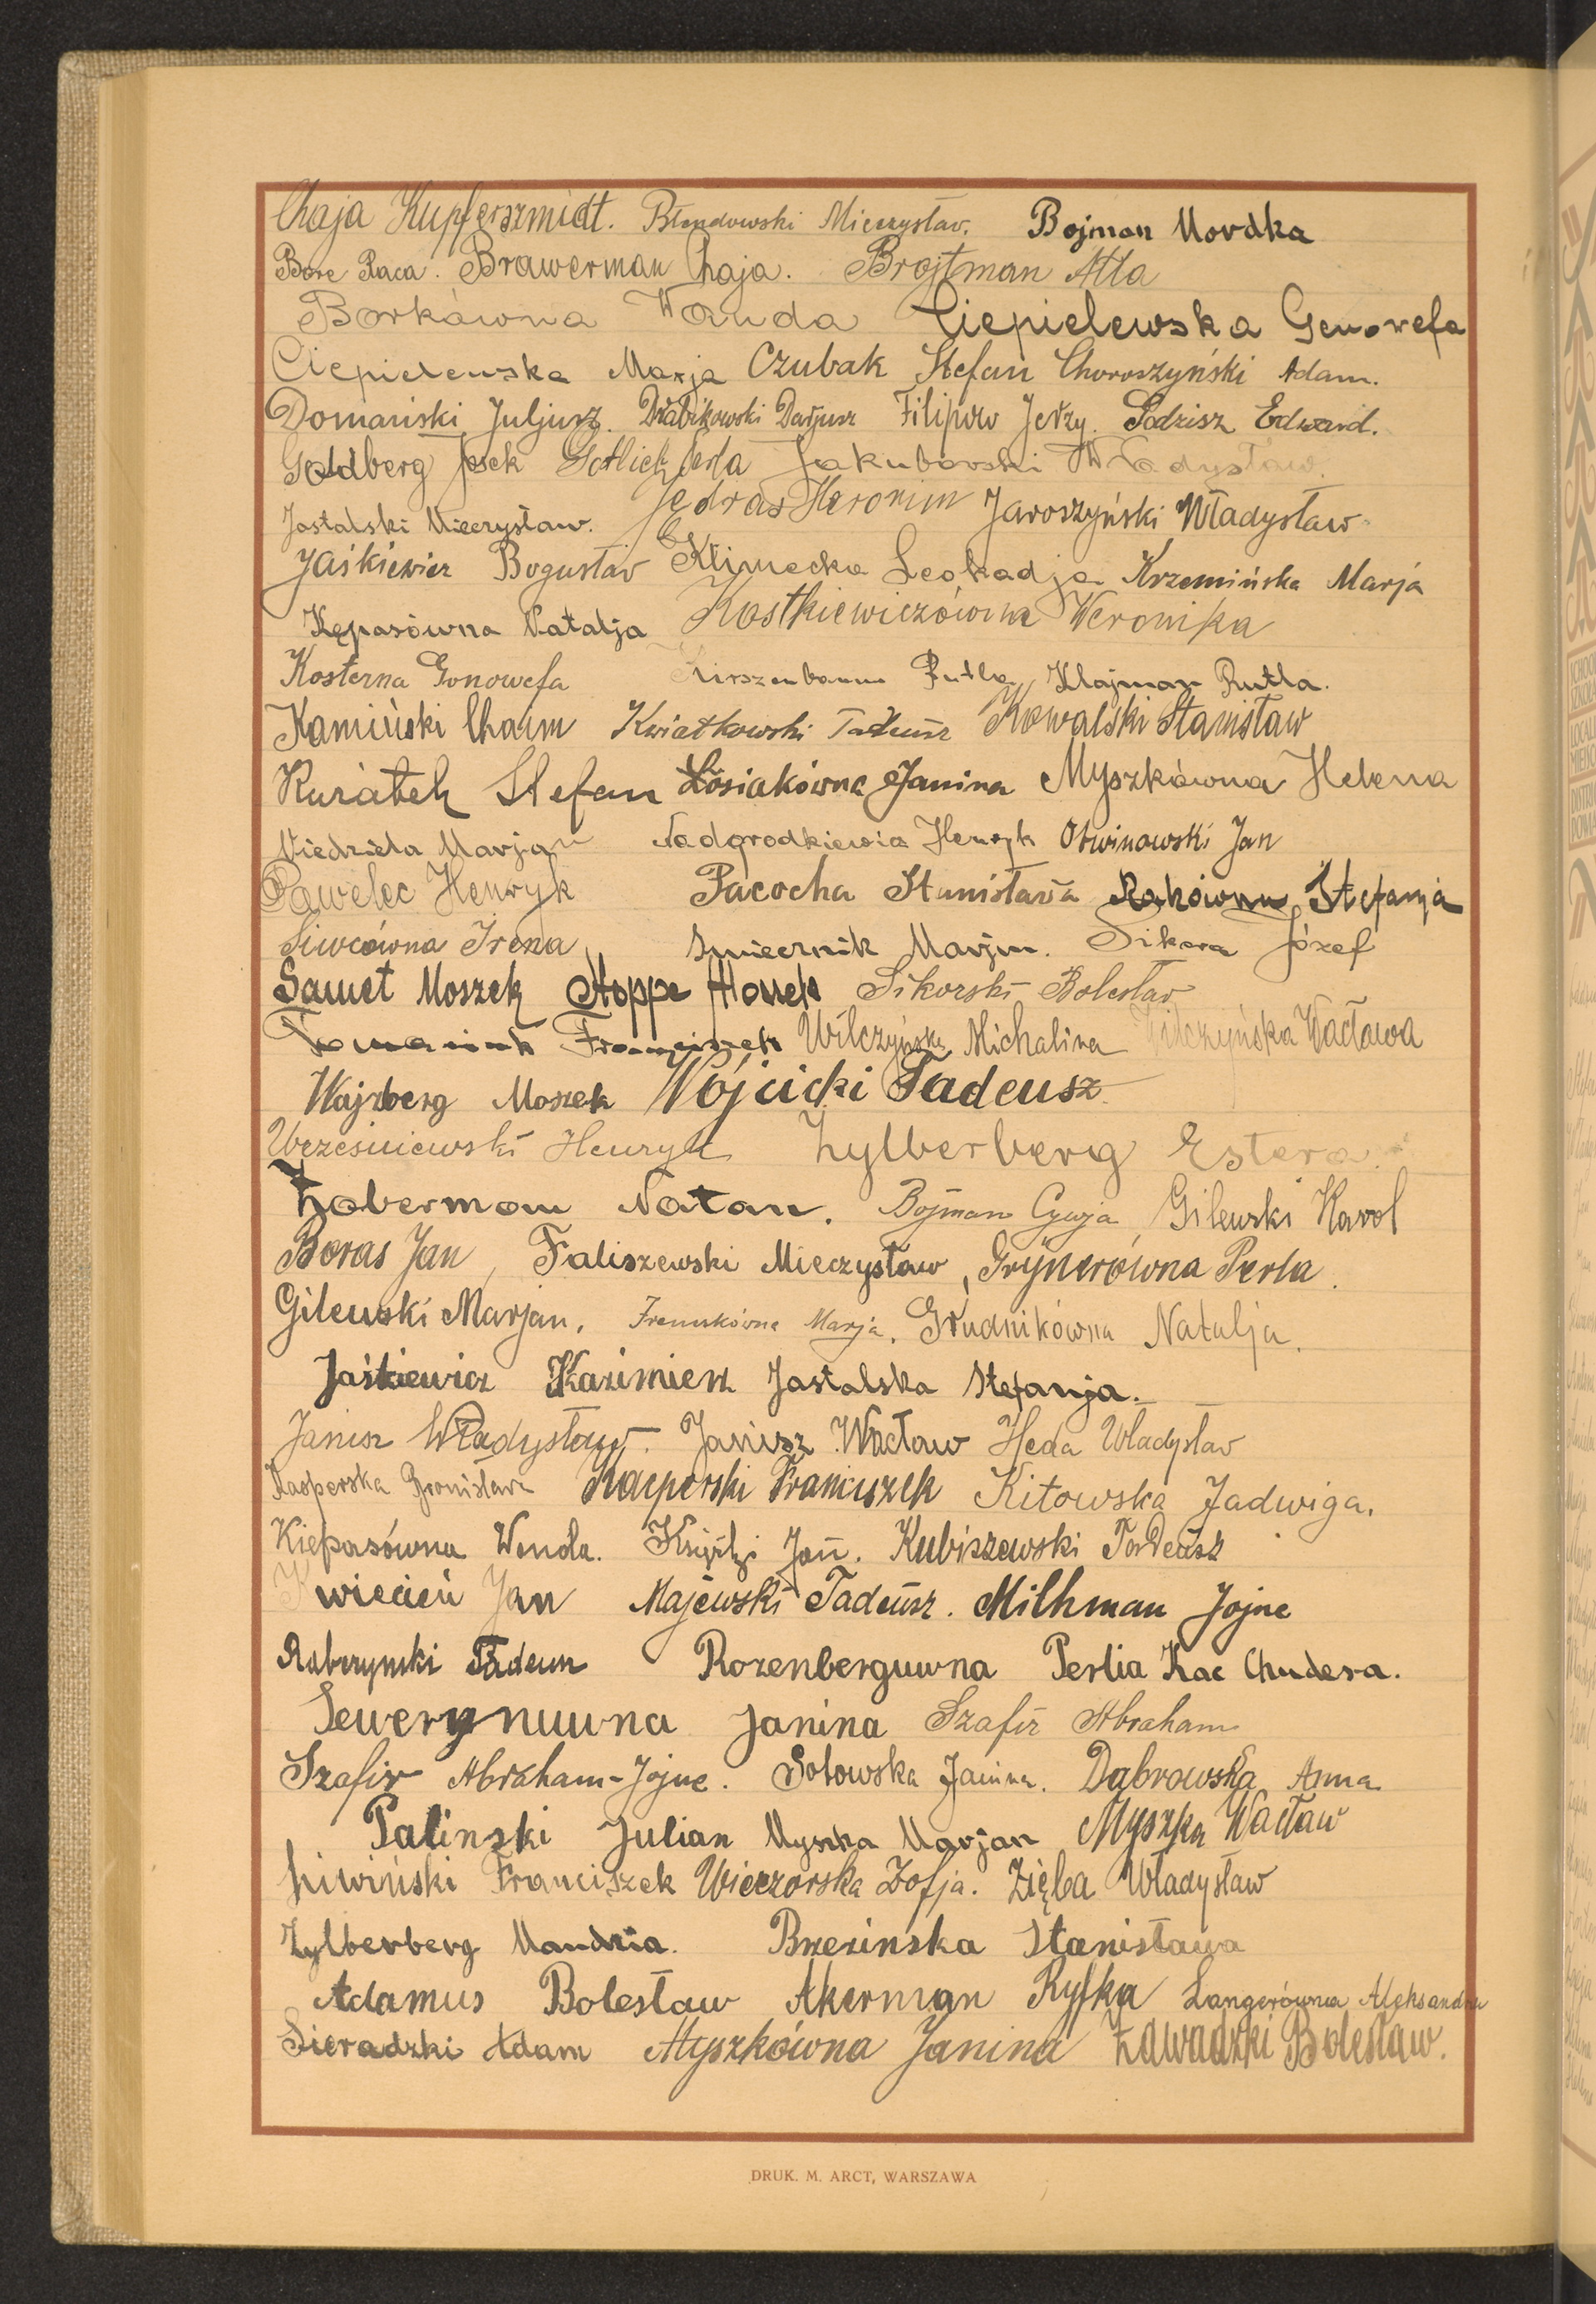 Chaja Kupferszmidt. Błendowski Mieczysław. Bojman Mordka
Bore Raca. Brawerman Chaja. Brojtman Atla
Borkówna Wanda Ciepielewska Genowefa
Ciepielewska Marja Czubak Stefan Choroszyński Adam.
Domański Juljusz. Drabikowski Darjusz Filipow Jerzy. Godzisz Edward.
Goldberg Josek Gotlieb Perla Jakubowski Władysław.
Jastalski Mieczysław. Jędras Heronim Jaroszyński Władysław
Jaśkiewicz Bogusław Klimecka Leokadja Krzemińska Marja
Kępasówna Natalja Kostkiewiczówna Weronika
Kosterna Gonowefa Kirszenbaum Rutla, Klajman Rutla.
Kamiński Chaim Kwiatkowski Tadeusz Kowalski Stanisław
Kuratek Stefan Łosiakówna Janina Myszkówna Helena
Niedziela Marjan Nadgrodkiewia Henryk Otwinowski Jan
Pawelec Henryk Pacocha Stanisława Rakówna Stefanja
Siwcówna Irena Smiecznik Marjan. Sikora Józef
Samet Moszek Stoppe Honek Sikorski Bolesław
Tomaniak Franciszek Wilczyńska Michalina Wilczyńska Wacława
Wajzberg Moszek Wójcicki Tadeusz
Wrześniewski Henryk Zylberberg Estera.
Zoberman Natan. Bojman Cywja, Gilewski Karol
Boras Jan, Faliszewski Mieczysław, Grynerówna Perla.
Gilewski Marjan. Frenukówna Marja. Grudnikówna Natalja.
Jaśkiewicz Kazimierz Jastalska Stefanja.
Janisz Władysław. Janisz Wacław Heda Władysław
Kasperska Bronisława Kacperski Franciszek Kitowska Jadwiga.
Kiepasówna Wanda. Książki Jan. Kubiszewski Tadeusz
Kwiecień Jan Majewski Tadeusz. Milhman Jojne
Rabczynski Tadeusz Rozenberguwna Perlia Kac Chudesa.
Sewerynuwna Janina Szafir Abraham
Szafir Abraham-Jojne. Sotowska Janina. Dąbrowska Anna
Palinski Julian Myszka Marjan Myszka Wacław
Liwiński Franciszek Wieczorska Zofja. Zięba Władysław
Zylberberg Mandzia. Brzezinska Stanisława
Adamus Bolesław Akerman Ryfka Langerówna Aleksandra
Sieradzki Adam Myszkówna Janina Zawadzki Bolesław.
DRUK. M. ARCT, WARSZAWA